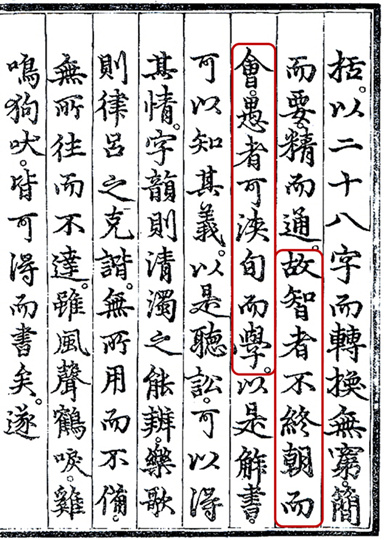 括。以二十八字而轉換無窮。簡
而要。精而通。故智者不終朝而
會。愚者可浹旬而學。以是解書。
可以知其義。以是聽訟。可以得
其情。字韻則淸濁之能辨。樂歌
則律呂之克諧。無所用而不備。
無所往而不達。雖風聲鶴唳。雞
鳴狗吠。皆可得而書矣。遂